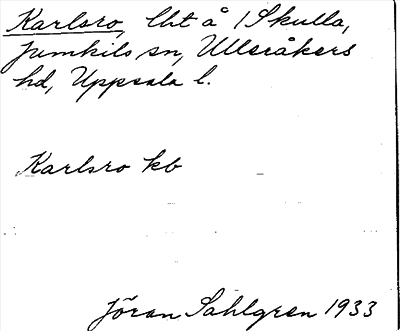 Karlsro, lht å 1 Skulla,
Jumkils sn, Ulleråkers
hd, Uppsala l.
Karlsro kb
Jöran Sahlgren 1933